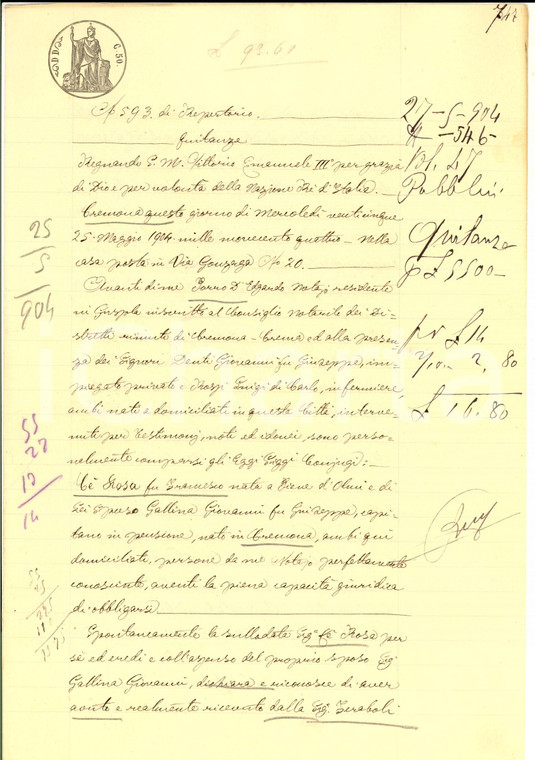 717
£ 92.61
D.D.Q. C. 50.
N 593. di Repertorio.
Quitanza
Regnando S. M. Vittorio Emanuele III° per grazia
di Dio e per volontà della Nazione Re d'Italia.
Cremona questo giorno di Mercoledì venticinque
25. Maggio 1904. mille novecento quattro - nella
casa posta in Via Gonzaga N° 20.
Avanti di me Porro Dr Edoardo Notajo residente
in inscritto al Consiglio Notarile dei Di-
stretti riuniti di Cremona - Crema ed alla presen-
za dei Signori Denti Giovanni fu Giuseppe, im-
piegato privato e Rossi Luigi di Carlo, infermiere,
ambi nati e domiciliati in questa Città, interve-
nuti per testimonj, noti ed idonei, sono perso-
nalmente comparsi gli Eggi Siggi Conjugi:
Cè Rosa fu Francesco nata a Pieve d'Olmi e di
Lei sposo Gallina Giovanni fu Giuseppe, capi-
tano in pensione, nato in Cremona, ambi qui
domiciliati, persone da me Notajo perfettamente
conosciute, aventi la piena capacità giuridica
di obbligarsi.
Spontaneamente la sullodata Sig. Cè Rosa per
sè ed eredi e coll'assenso del proprio sposo Sig.
Gallina Giovanni, dichiara e riconosce di aver
avuto e realmente ricevuto dalla Sig. Zeraboli
27-5-904
N - 546 -
Vol. 47
Pubblici
Quitanza
p £ 5500 -
pr £ 14
2/10 2,80
£ 16.80
25
5
904
55
22
12
14